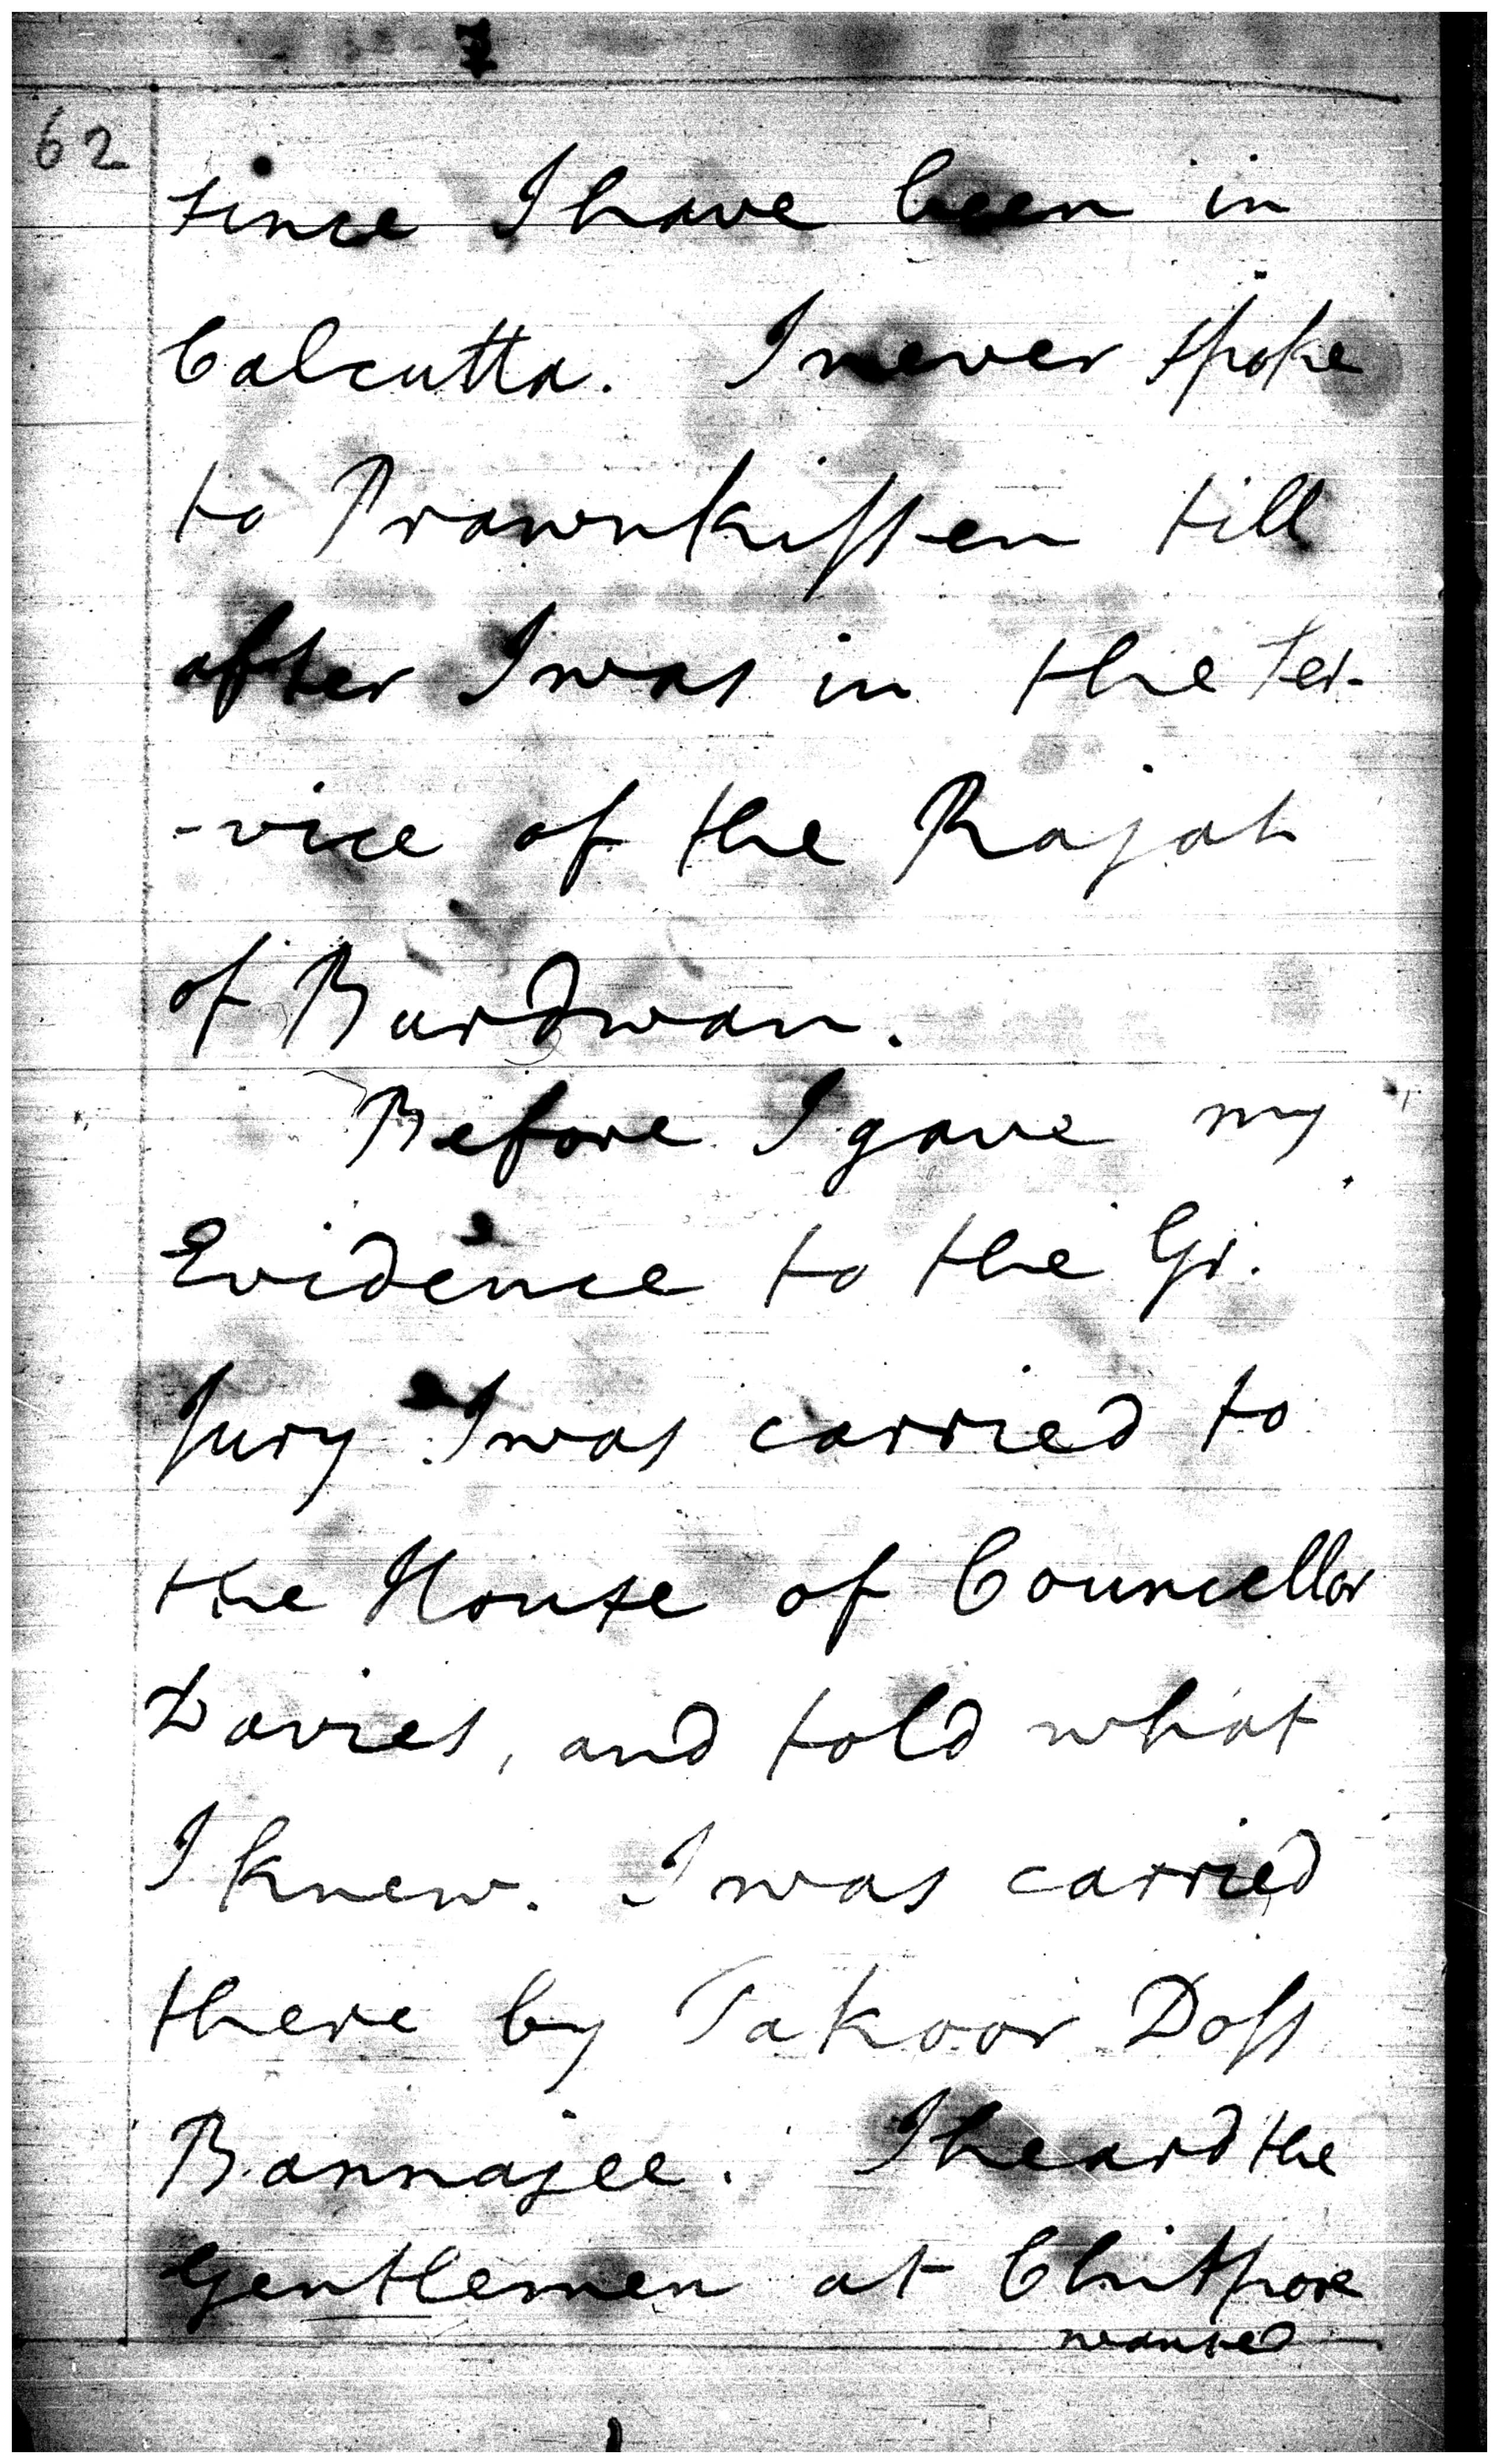 62
since I have been in
Calcutta. I never spoke
to Prawnkissen till
after I was in the ser-
-vice of the Rajah
of Burdwan.
Before I gave my
Evidence to the Gr.
Jury I was carried to
the House of Councellor
Davies, and told what
I knew. I was carried
there by Takoor Doss
Bannajee. I heard the
Gentlemen at Chitpore
wanted